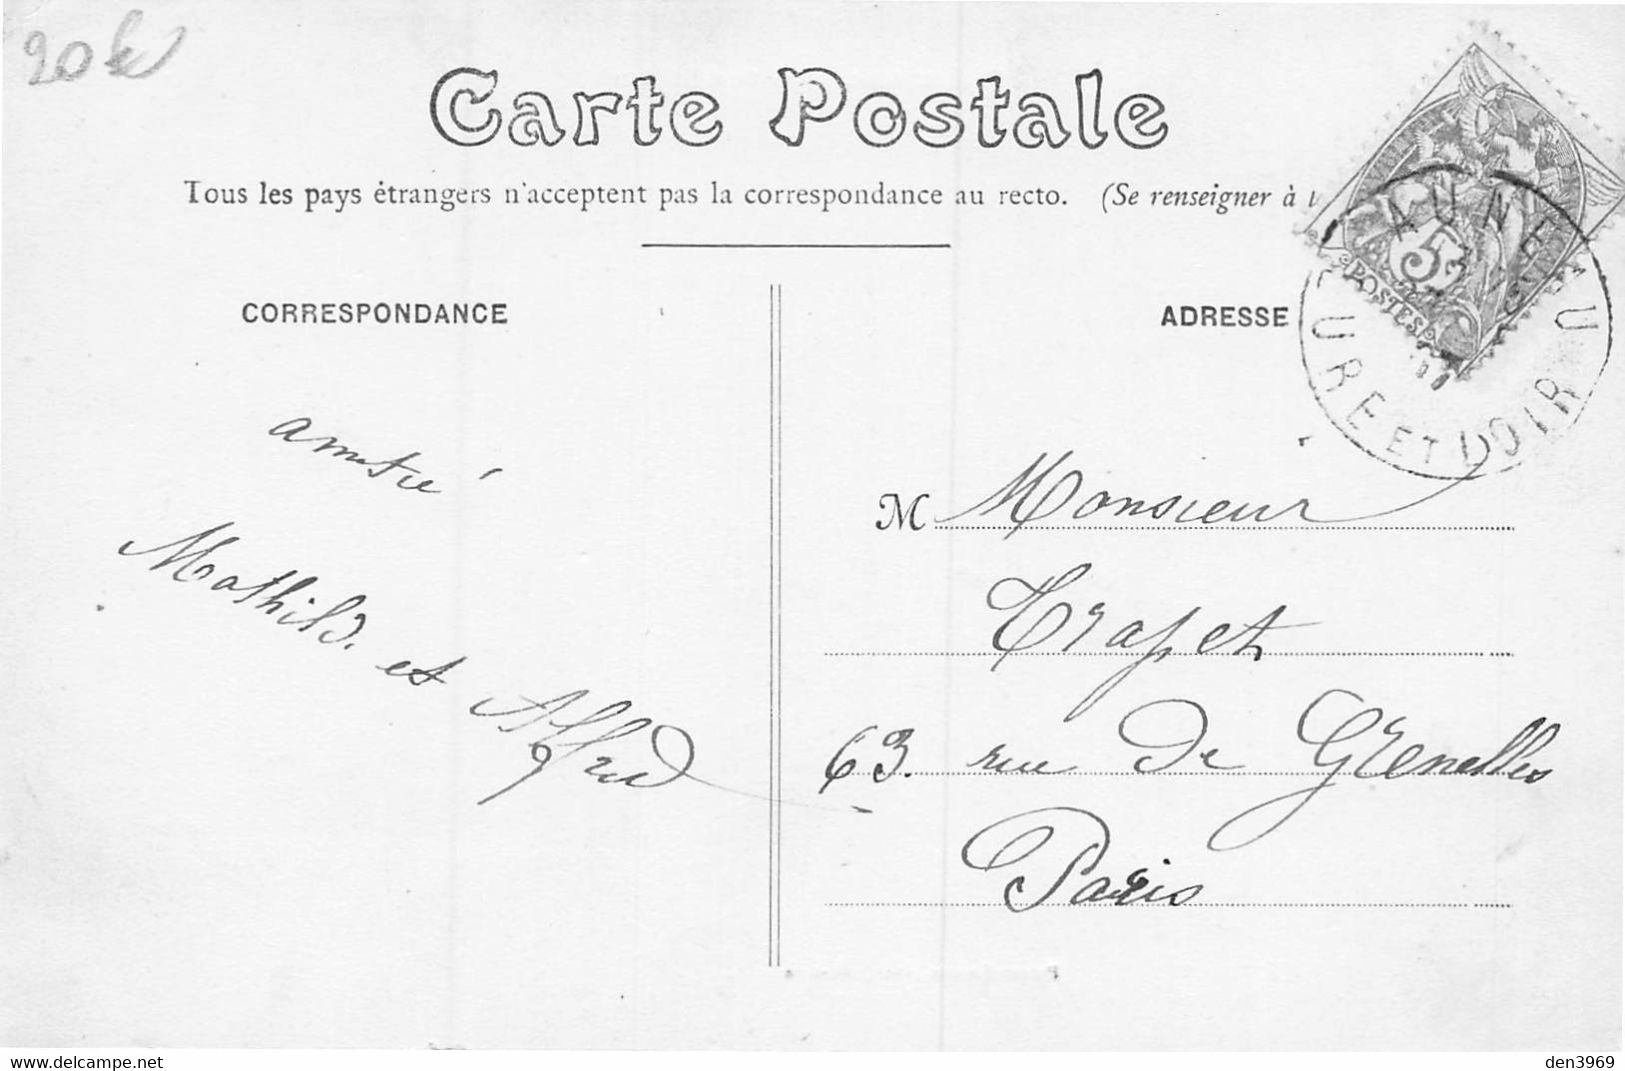 20 €
Carte Postale
Tous les pays étrangers n'acceptent pas la correspondance au recto. (Se renseigner à
5
POSTES
AUNEAU
EURE ET LOIR
CORRESPONDANCE
ADRESSE
amitié
Mathild. et Alfred
M Monsieur
Trapet
63. rue de Grenelles
Paris
www.delcampe.net
den3969